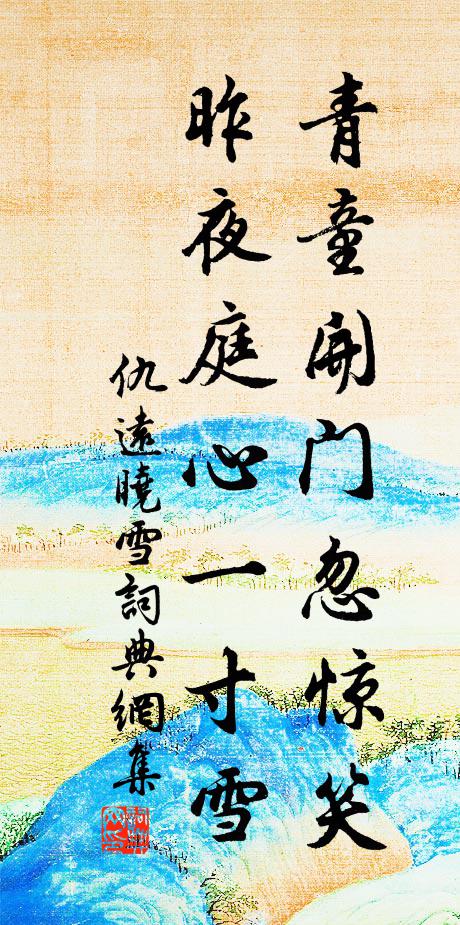 青童開门忽惊笑
昨夜庭心一寸雪
仇遠曉雪詞典網集